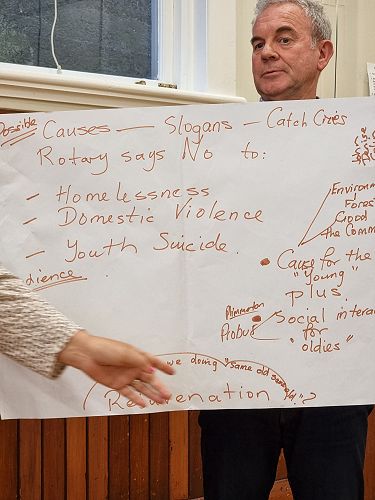 Possible Causes — Slogans — Catch Cries
Rotary says No to:
- Homelessness
- Domestic Violence
- Youth Suicide.
dience
Environm
Fores
Good
the Comm
• Cause for the
"Young"
Plus.
Plimmerton
Probus
• Social intera
"for
oldies"
we doing "same old same old"?
Rejuvenation